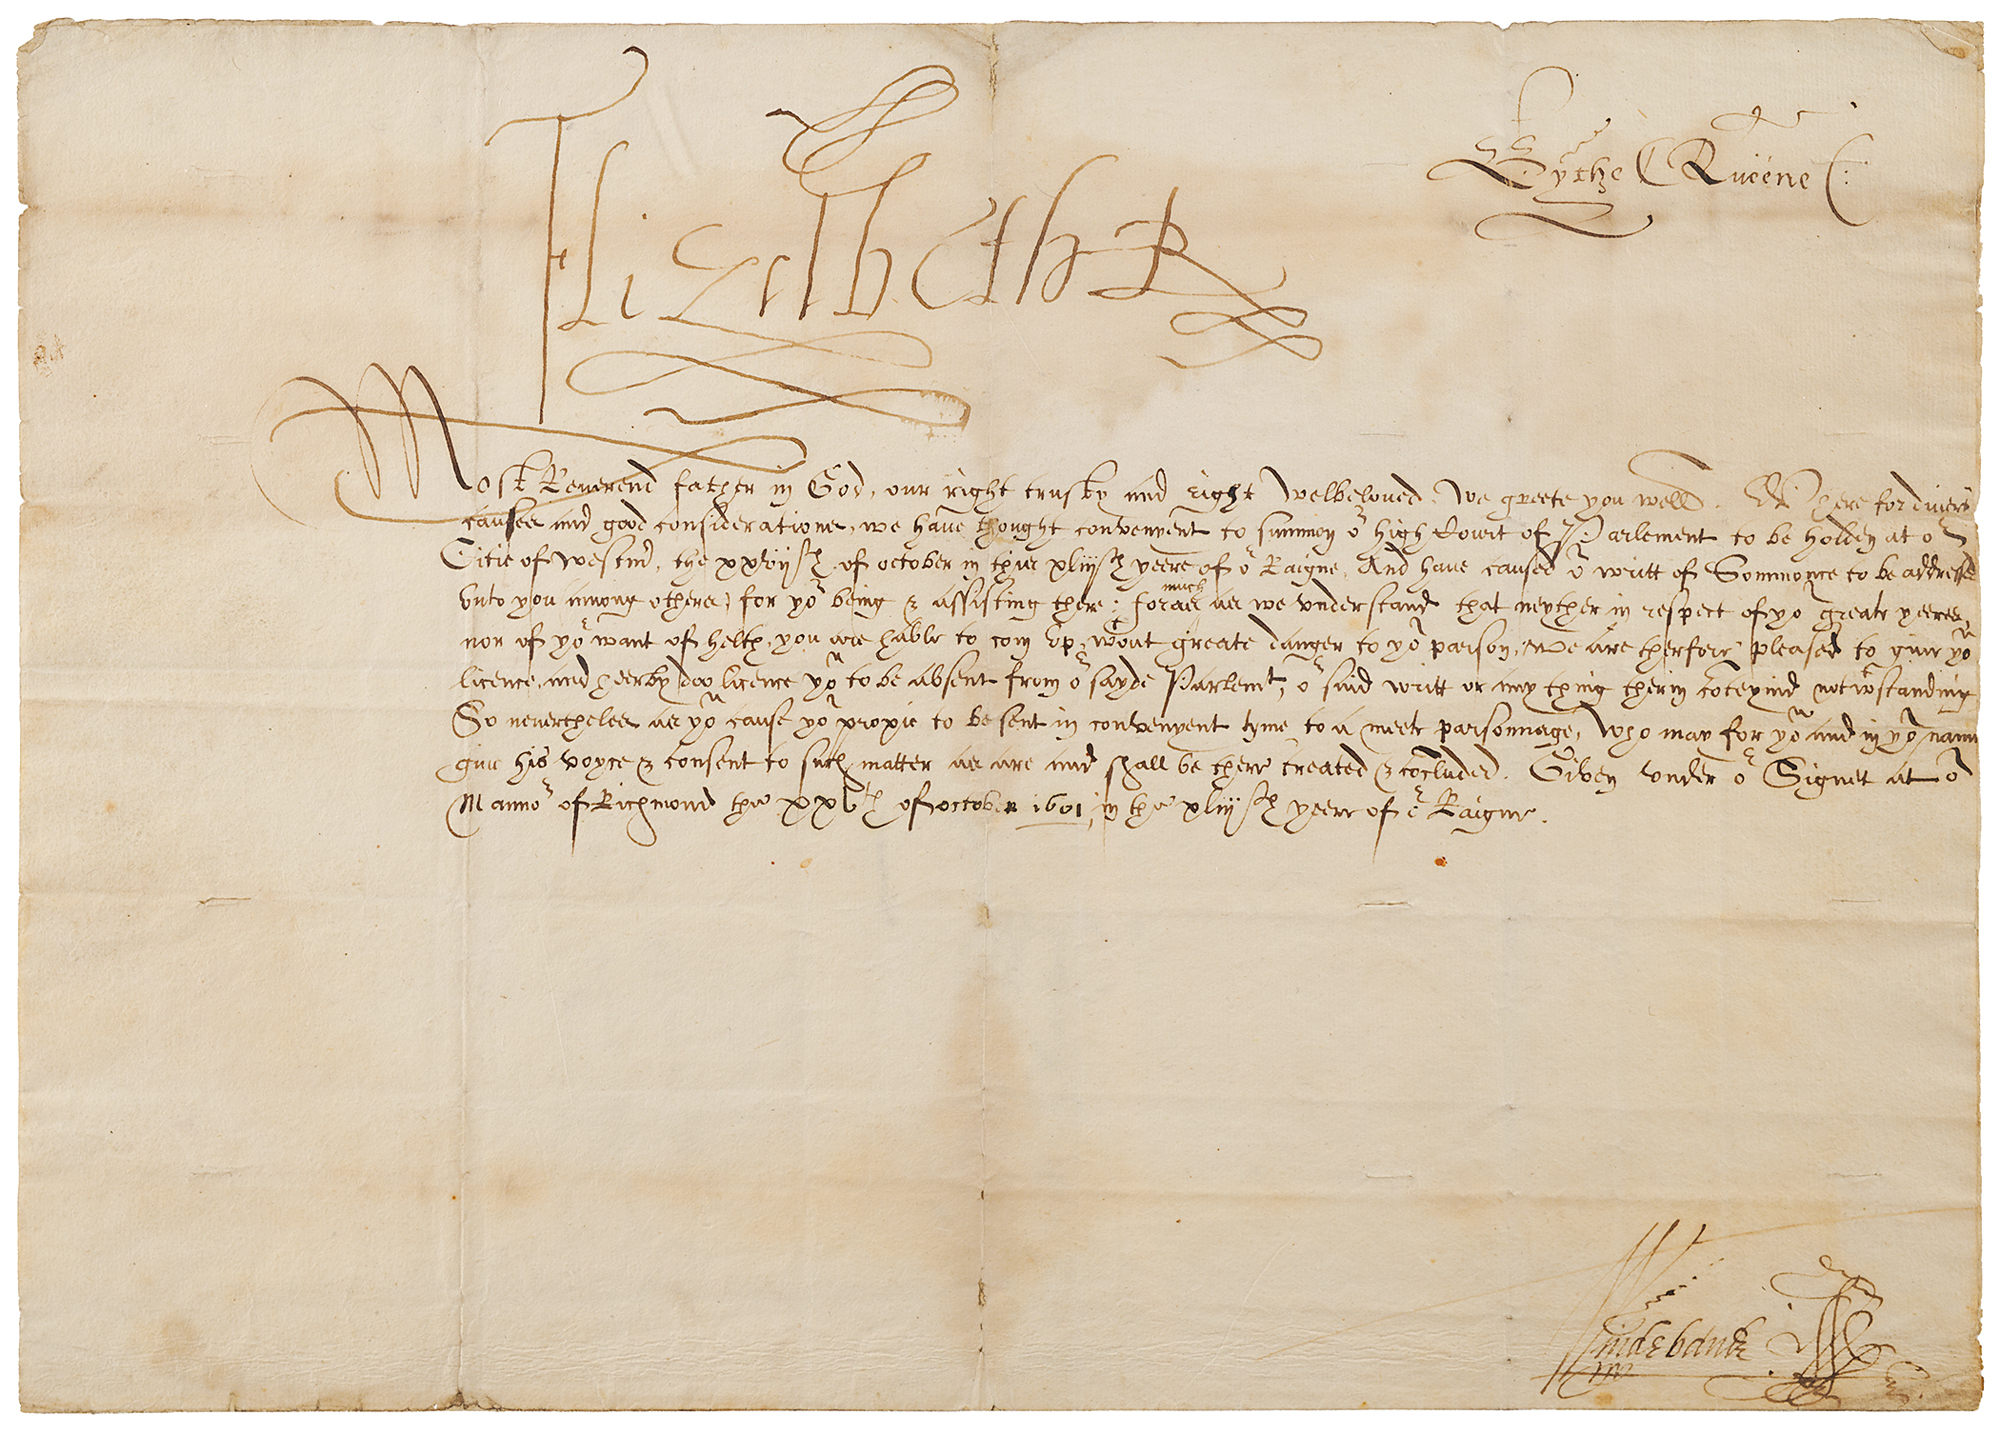 Elizabeth R
By the Queene
Most Reverend father in God, our right trusty and right welbeloved. We greete you well. Where for divers
causes and good considerations, we have thought convenyent to sum̄on oʳ high Court of Parlement to be holden at oʳ
Citie of Westmʳ, the xxvijᵗʰ of october in this xliijᵗʰ yeere of oʳ Raigne, And have caused oʳ writt of Sommonce to be addressed
vnto you among others, for yoʳ being & assisting there: forasmuch as we vnderstand that neyther in respect of yoʳ great yeeres,
nor of yoʳ want of helth, you are hable to com vp wᵗout greate danger to yoʳ parson, We are therfore pleased to give yoᵘ
licence, and heerby doo licence yoᵘ to be absent from oʳ sayde Parlemᵗ, oʳ said writt or any thing therin cōteynd notwᵗstanding
So neverthelес as yoᵘ cause yoʳ proxie to be sent in convenyent tyme to a meete parsonnage, who may for yoᵘ and in yoʳ name
give his voyce & consent to such matter as are and shall be there treated & cōcluded. Given vnder oʳ Signet at oʳ
Mannoʳ of Richmond the xxvᵗʰ of october 1601, in the xliijᵗʰ yeere of oʳ Raigne.
Windebank